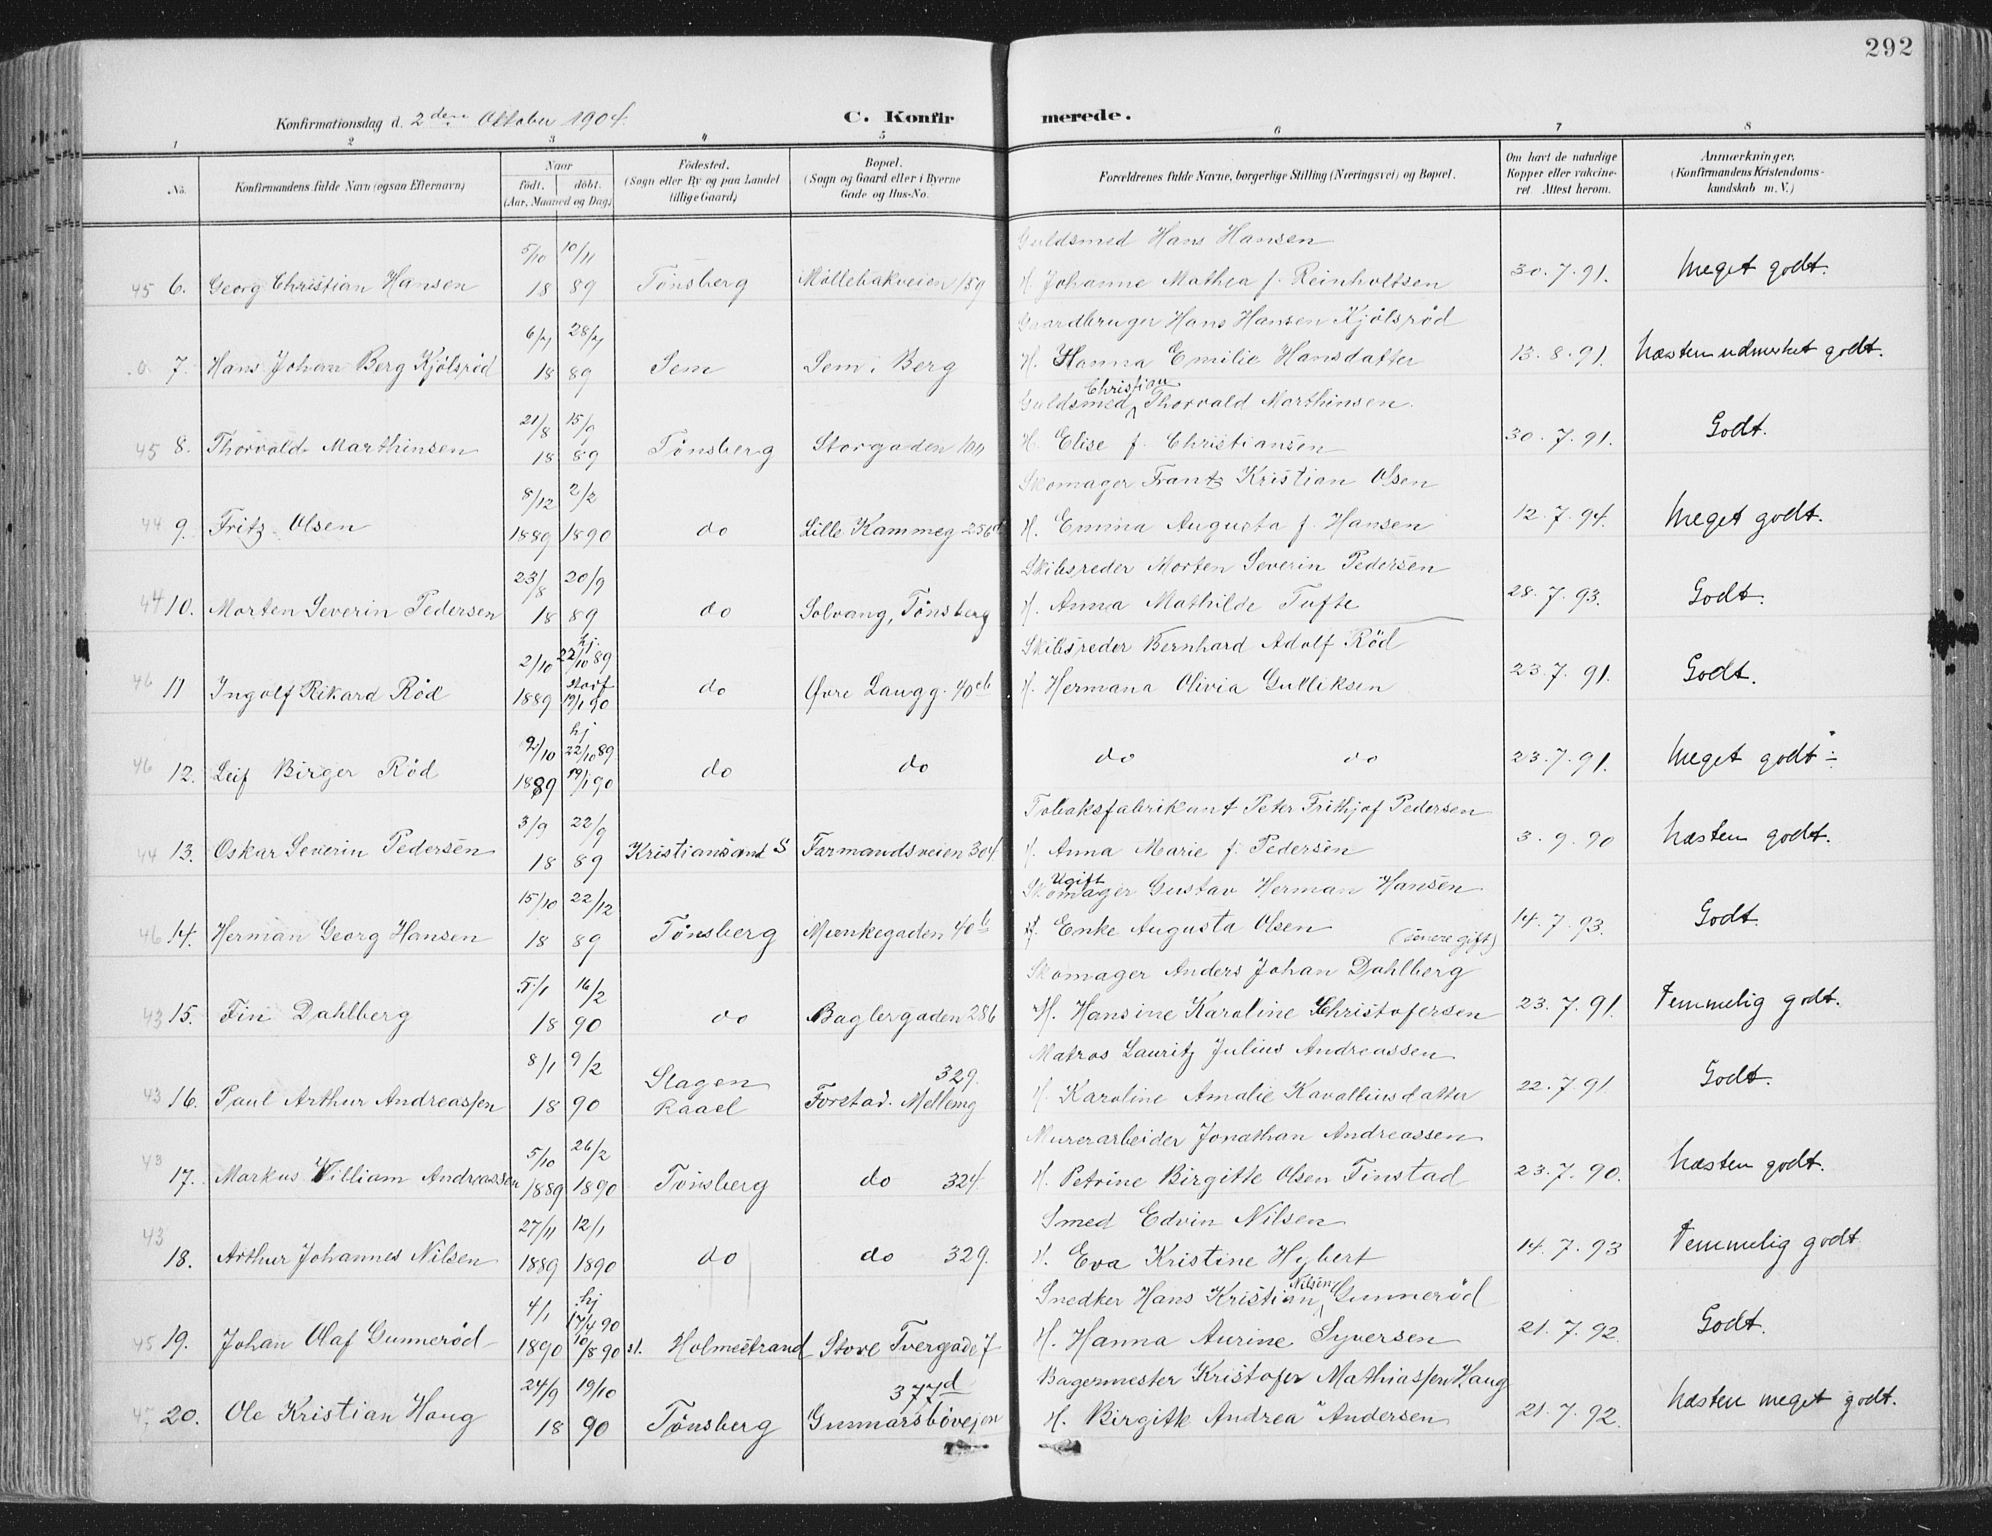 292
Konfirmationsdag d. 2den Oktober 1904. C. Konfirmerede.
1 2 3 4 5 6 7 8
No. Konfirmandens fulde Navn (ogsaa Efternavn) Naar født. døbt. (Aar, Maaned og Dag) Fødested. (Sogn eller By og paa Landet tillige Gaard) Bopæl. (Sogn og Gaard eller i Byerne Gade og Hus-No. Forældrenes fulde Navne, borgerlige Stilling (Næringsvei) og Bopæl. Om havt de naturlige Kopper eller vakcineret. Attest herom. Anmærkninger. (Konfirmandens Kristendomskundskab m. V.)
5/10 10/11 Guldsmed Hans Hansen
45 6. Georg Christian Hansen 18 89 Tønsberg Møllebakveien 159 H. Johanne Mathea f. Reinholtsen 30.7.91. Meget godt.
6/7 28/7 Gaardbruger Hans Hansen Kjølsrød
7. Hans Johan Berg Kjølsrød 18 89 Sem Sem i Berg H. Hanna Emilie Hansdatter 13.8.91. Næsten udmerket godt.
Christian
21/8 15/9 Guldsmed Thorvald Marthinsen.
45 8. Thorvald Marthinsen 18 89 Tønsberg Storgaden H. Elise f. Christiansen 30.7.91. Godt.
8/12 2/2 Skomager Frantz Kristian Olsen
44 9. Fritz Olsen 1889 1890 do Lille Kammeg 256 H. Emma Augusta f. Hansen 12.7.94. Meget godt.
23/8 20/9 Skibsreder Morten Severin Pedersen
44 10. Morten Severin Pedersen 18 89 do Solvang, Tønsberg H. Anna Mathilde Tufte 28.7.93. Godt.
hj.
2/10 22/10 89 Skibsreder Bernhard Adolf Rød
46 11 Ingolf Rikard Rød 1889 stadf. 19/1 90 do Øvre Langg. 40 H. Hermana Olivia Gulliksen 23.7.91. Godt.
hj
2/10 22/10 89
46 12. Leif Birger Rød 1889 19/1 90 do do do do 23.7.91. Meget godt ÷
3/9 22/9 Tobaksfabrikant Peter Frithjof Pedersen
44 13. Oskar Severin Pedersen 18 89 Kristiansand S Farmandsveien 304 H. Anna Marie f. Pedersen 3.9.90 Næsten godt.
Ugift
15/10 22/12 Skomager Gustav Herman Hansen
46 14. Herman Georg Hansen 18 89 Tønsberg Munkegaden 40b Enke Augusta Olsen (senere gift) 14.7.93. Godt.
5/1 16/2 Skomager Anders Johan Dahlberg
43 15. Fin Dahlberg 18 90 do Baglergaden 286 H. Hansine Karoline Christofersen 23.7.91. Temmelig godt.
8/1 9/2 Slagen 329. Matros Lauritz Julius Andreassen
43 16. Paul Arthur Andreassen 18 90 Raael Forstad. Mellemg H. Karoline Amalie Kavalliusdatter 22.7.91. Godt.
5/10 26/2 Murerarbeider Jonathan Andreassen
43 17. Markus William Andreassen 1889 1890 Tønsberg do 324. H. Petrine Birgitte Olsen Finstad 23.7.90. Næsten godt.
27/11 12/1 Smed Edvin Nilsen
43 18. Arthur Johannes Nilsen 1889 1890 do do 329. H. Eva Kristine Hybert 14.7.93 Temmelig godt
hj Nilsen
4/1 17/4 90 Snedker Hans Kristian Gunnerød
45 19. Johan Olaf Gunnerød 1890 10/8 90 st. Holmestrand Store Tvergade 7 H. Hanna Aurine Syversen 21.7.92. Godt.
24/9 19/10 377d Bagermester Kristofer Mathiassen Haug
20. Ole Kristian Haug 18 90 Tønsberg Gunnarsbøveien H. Birgitte Andrea Andersen 21.7.92. Næsten meget godt.